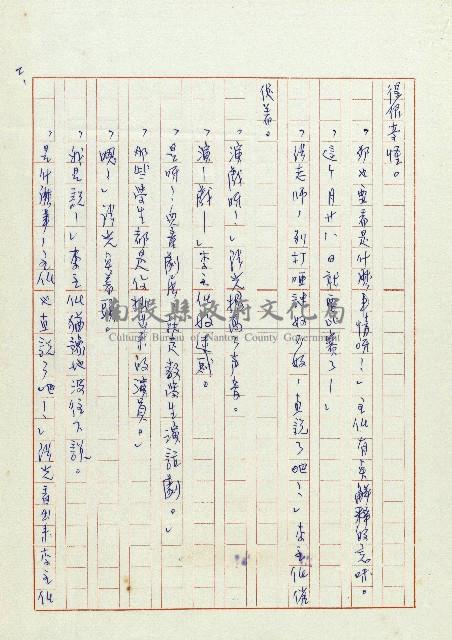 得很幸懂。
「那也要看是什麼事情呀!」主任有點解釋的意味。
「這個月廿八日就要比賽了!」
「洪老師,別打啞謎好不好,直說了吧!」李主任催
促着。
「演戲呀!」洪光提高了聲音。
「演!戲!」李主任
「是呀!兒童劇展就是教學生演話劇。」
「那些學生都是
演員。」
「嗯!」洪光點着頭。
「我是說!」李主任猶豫地沒往下說。
「是什麼事!主任也直說了吧!」洪光看出來李主任
南投縣政府文化局
Cultural Bureau of Nantou County Government